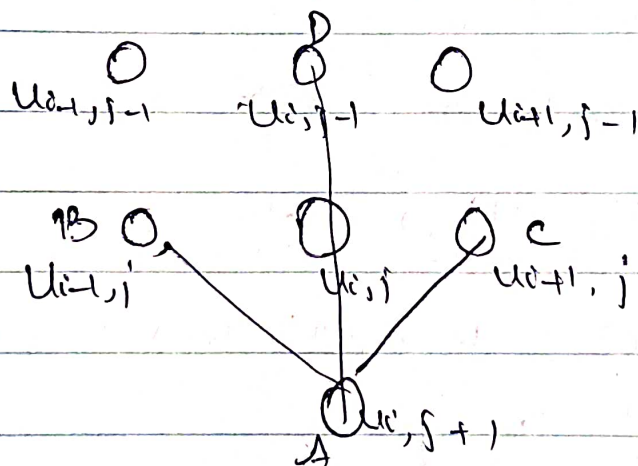 D
ui-1,j-1 ui,j-1 ui+1,j-1
B C
ui-1,j ui,j ui+1,j
ui,j+1
A